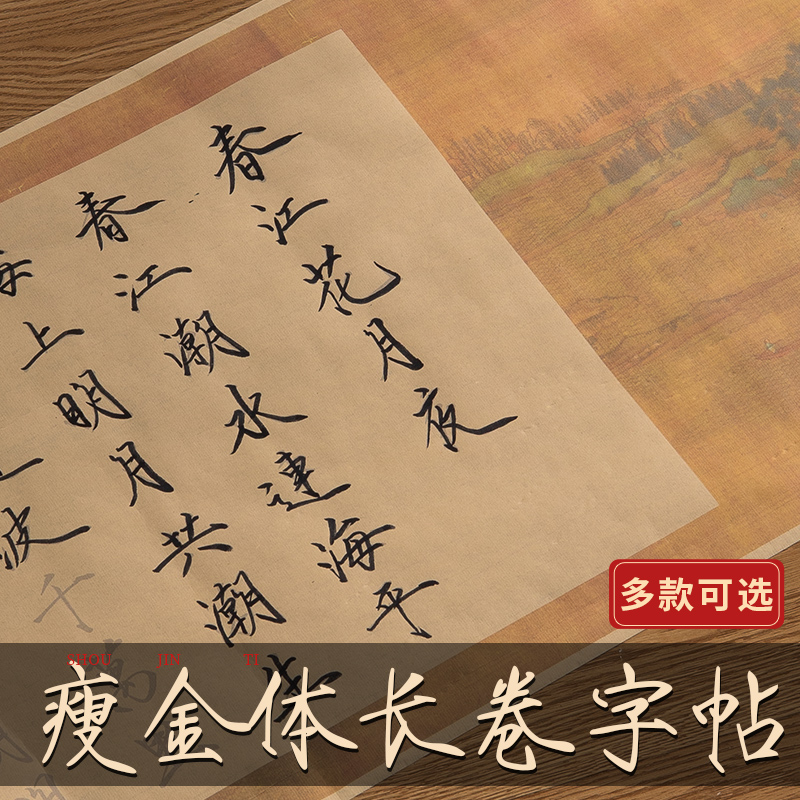 春江花月夜
春江潮水連海平
海上明月共潮生
波千
多款可选
SHOU JIN TI
瘦金体长卷字帖